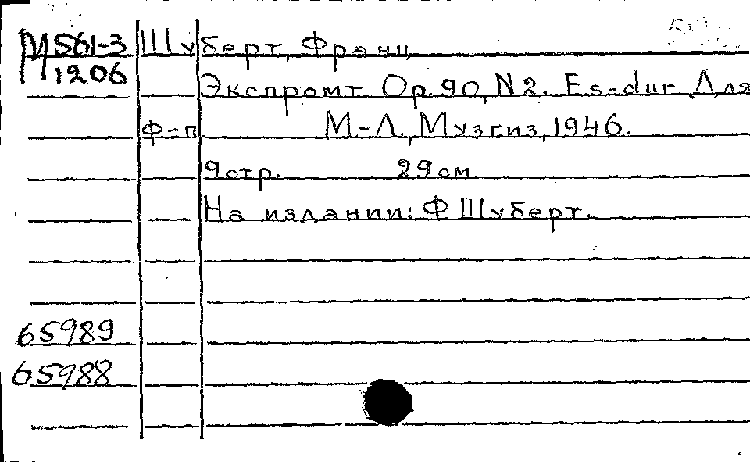 М561-3 Шуберт, Франц
1206
Экспромт Op.90, N2. Es-dur Для
ф-п М-Л, Музгиз, 1946.
9стр. 29см
На издании: Ф Шуберт.
65989
65988